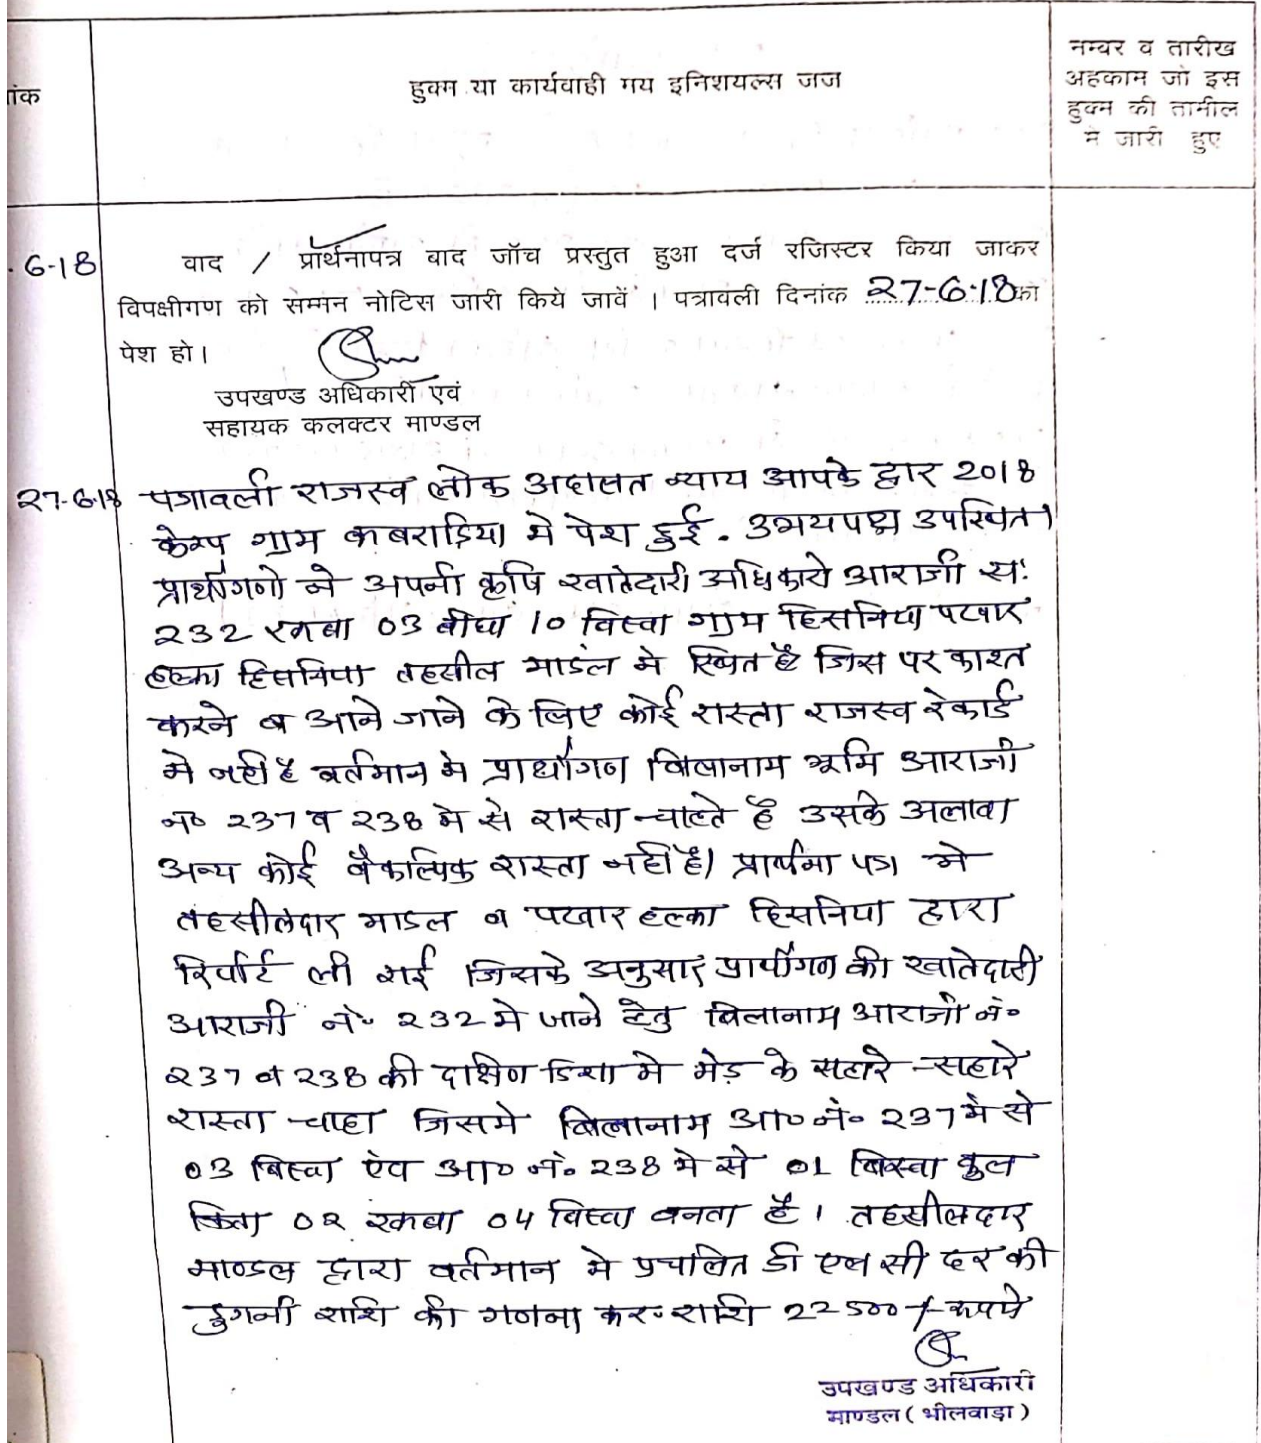 ांक
हुक्म या कार्यवाही मय इनिशयल्स जज
नम्बर व तारीख
अहकाम जो इस
हुक्म की तामील
मे जारी हुए
.6-18
वाद / प्रार्थनापत्र वाद जॉच प्रस्तुत हुआ दर्ज रजिस्टर किया जाकर
विपक्षीगण को सम्मन नोटिस जारी किये जावें । पत्रावली दिनांक 27-6-18 को
पेश हो।
उपखण्ड अधिकारी एवं
सहायक कलक्टर माण्डल
27-6-18 पत्रावली राजस्व लोक अदालत न्याय आपके द्वार 2018
केम्प ग्राम कबराडिया मे पेश हुई. उभयपक्ष उपस्थित।
प्रार्थीगणो ने अपनी कृषि खातेदारी अधिकारो आराजी स:
232 रकबा 03 बीघा 10 बिस्वा ग्राम हिसनिया पटवार
हल्का हिसनिया तहसील माडंल मे स्थित है जिस पर काश्त
करने व आने जाने के लिए कोई रास्ता राजस्व रेकार्ड
मे नही है वर्तमान मे प्रार्थीगण बिलानाम भूमि आराजी
न० 237 व 238 मे से रास्ता चाहते है उसके अलावा
अन्य कोई वैकल्पिक रास्ता नही है। प्रार्थना पत्र मे
तहसीलदार माडल व पटवार हल्का हिसनिया द्वारा
रिपोर्ट ली गई जिसके अनुसार प्रार्थीगण की खातेदारी
आराजी नं० 232 मे जाने हेतु बिलानाम आराजी नं०
237 व 238 की दक्षिण दिशा मे मेड़ के सहारे-सहारे
रास्ता चाहा जिसमे बिलानाम आ० नं० 237 मे से
03 बिस्वा एंव आ० नं० 238 मे से 01 बिस्वा कुल
किता 02 रकबा 04 बिस्वा बनता है। तहसीलदार
माण्डल द्वारा वर्तमान मे प्रचलित डी एल सी दर की
दुगनी राशि की गणना कर राशि 22500/- रूपये
उपखण्ड अधिकारी
माण्डल (भीलवाड़ा)